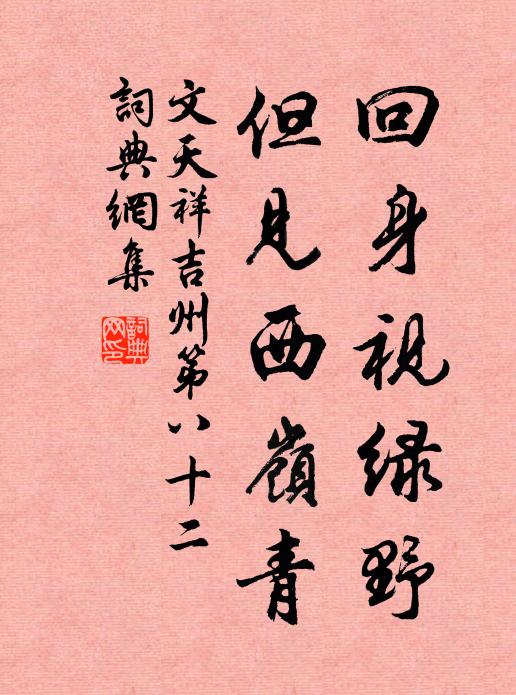 回身視綠野
但見西嶺青
文天祥吉州第八十二
詞典網集
詞典網印